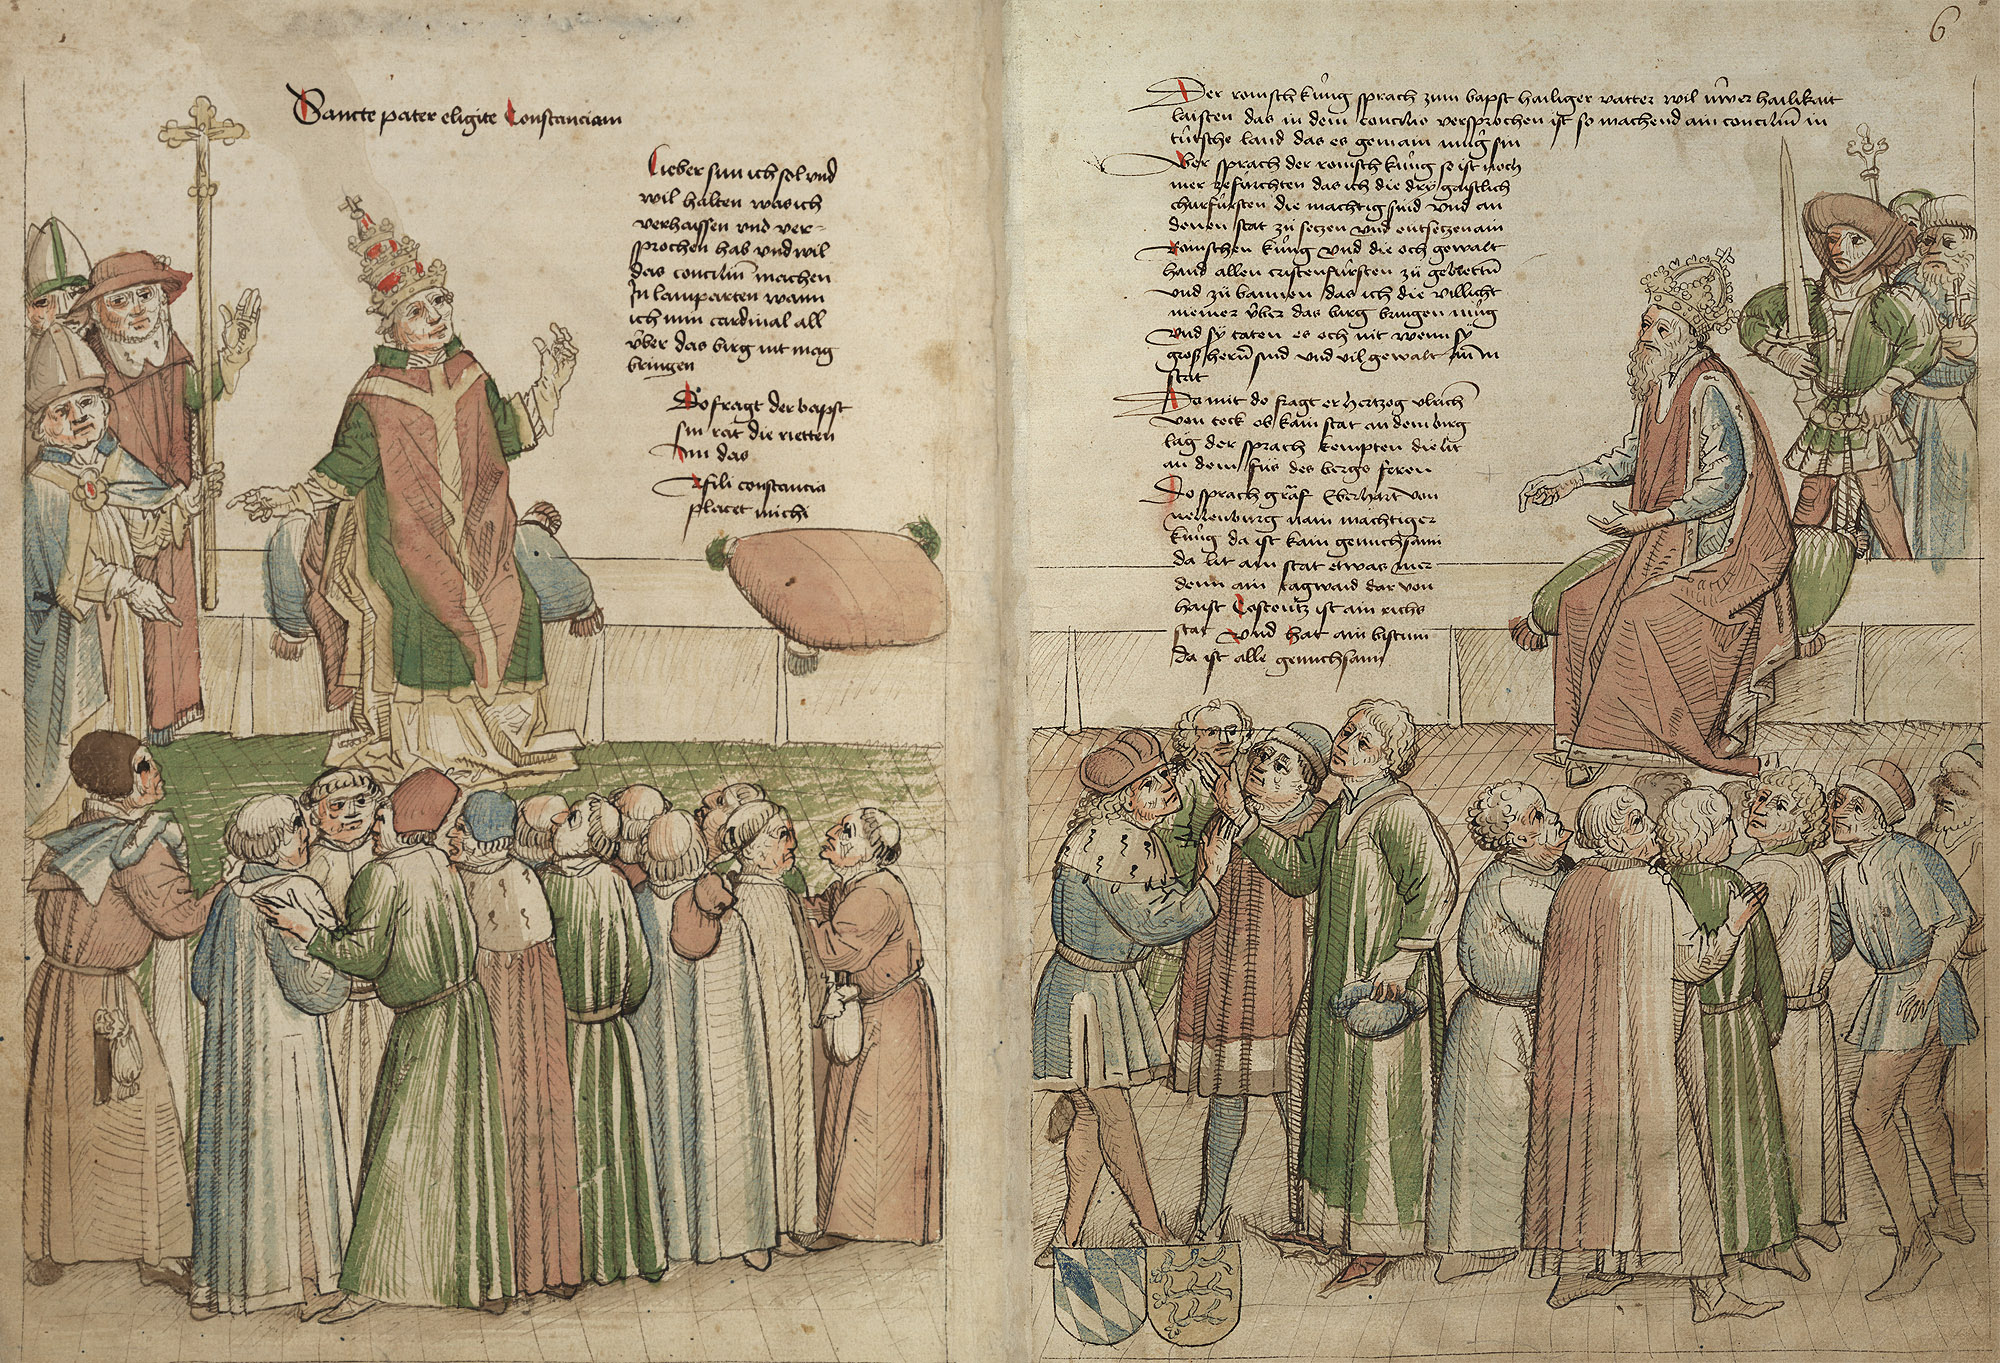 Sancte pater eligite Constanciam
Lieber sun ich sol vnd
wil halten was ich
verhaissen vnd ver-
sprochen hab vnd wil
das conciliū machen
In lamparten wann
ich min cardinal all
v̊ber das birg nit mag
bringen
Do fragt der bapst
sin rät die rietten
im das
O fili constancia
placet michi
6
Der romisch kùng sprach zum bapst hailiger vatter wil ùwer hailikait
laisten das in dem concilio versprochen ist so machend ain conciliū in
tùtsche land das es gemain mùg sin
Aber sprach der romisch kùng so ist noch
mer ze fùrchten das ich die dry gaistlich
churfùrsten die machtig sind vnd an
denen stat zù setzen vnd entsetzen ain
Romischen kùng vnd die och gewalt
hand allen cristenfùrsten zù gebietten
vnd zù bannen das ich die villicht
niemer v̊ber das birg bringen mùg
vnd sÿ täten es och nit wenn sÿ
groß herrn sind vnd vil gewalt an in
stat
Da mit do fragt er hertzog vlrich
von teck ob kain stat an dem birg
låg der sprach kempten die lit
an dem fùs des bergs feren
Do sprach gräf Eberhart von
nellenburg nain mächtiger
kùng da ist kain genuchsami
da lit ain stat etwas mer
denn ain tagwaid dar von
haist Costentz ist ain richs
stat vnd hat ain bistum
da ist alle genuchsami